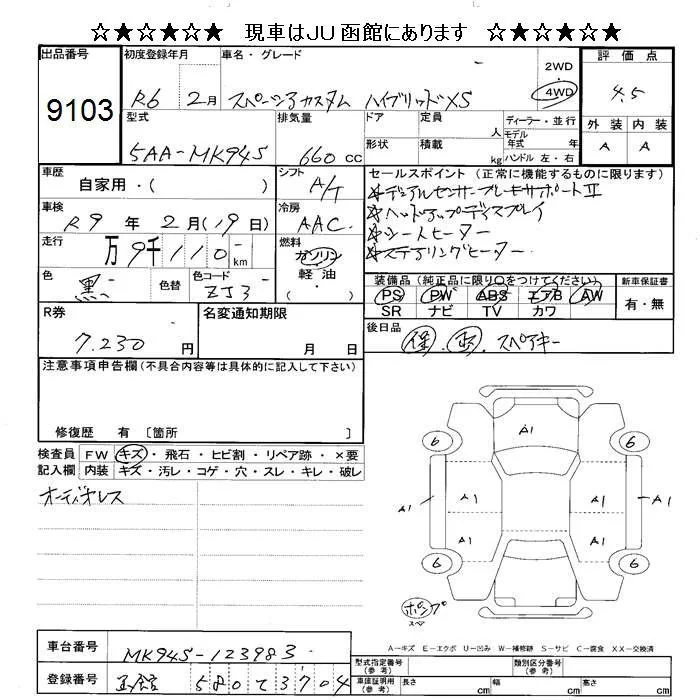 ☆★☆★☆★ 現車はJU函館にあります ☆★☆★☆★
出品番号 初度登録年月 車名・グレード 2WD 4WD 評価点
9103 R6 2月 スペーシアカスタム ハイブリッドXS 4.5
型式 排気量 ドア 定員 人 ディーラー・並行 外装 内装
5AA-MK94S 660cc 形状 積載 kg モデル年式 年 ハンドル 左・右 A A
車歴 シフト セールスポイント(正常に機能するものに限ります)
自家用・( ) A/T ☆デュアルセンサーブレーキサポートⅡ
車検 冷房 ☆ヘッドアップディスプレイ
R9年 2月(19日) AAC ☆シートヒーター
走行 燃料 ☆ステアリングヒーター
万9千110km ガソリン
色 色替 色コード 軽油・ 装備品(純正品に限り○をつけてください) 新車保証書
黒 ZJ3 ( ) PS PW ABS エアB AW 有・無
SR ナビ TV カワ
R券 名変通知期限 後日品
7.230円 月 日 保・取・スペアキー
注意事項申告欄(不具合内容等は具体的に記入して下さい)
修復歴 有 〔箇所 〕
検査員 FW キズ・飛石・ヒビ割・リペア跡・×要
記入欄 内装 キズ・汚レ・コゲ・穴・スレ・キレ・破レ
オーディオレス
A1
6 6
A1 A1 A1 A1
A1 A1
6 6
ポンプ
スペア
A-キズ E-エクボ U-凹み W-補修跡 S-サビ C-腐食 XX-交換済
車台番号 MK94S-123983
登録番号 函館 580 て 3704
型式指定番号(参考) 類別区分番号(参考)
車庫証明用(参考) 長さ cm 幅 cm 高さ cm